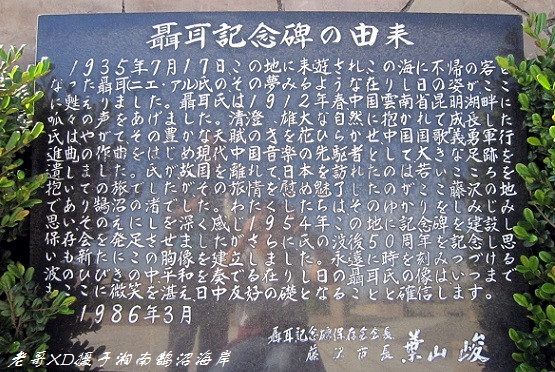 聶耳記念碑の由来
1935年7月17日、この地に来遊されこの海に不帰の客と
なった聶耳ニエ・アル氏のその夢みるような在りし日の姿がここ
に甦えりました。聶耳氏は1912年春中国雲南省昆明湖畔に
呱々の声をあげました。清澄、雄大な自然に抱かれて成長した
氏はやがてその豊かな天賦の才を花ひらかせ中国国歌義勇軍行
進曲の作曲をはじめ現代中国音楽の先駆者として大きな足跡を
遺しました。氏が故国を離れて日本を訪れたのは若いこころを
抱いての旅でしたがその旅情を慰め魅了したのがここ藤沢の地
であり鵠沼の渚でした。わたくしたちはそのゆかりをしみじみ
思いそのえにしを深く感じ1954年この地に記念碑を建設し
保存会を発足させましたがさらに氏の没後50周年を記念し思
いも新たにこの胸像を建立しました。永遠に時を刻みつづける
波のひびきの中平和を奏でる在りし日の聶耳氏の像はいつまで
もここに微笑を湛え日中友好の礎となることと確信します。
1986年3月
聶耳記念碑保存会会長
藤沢市長 葉山 峻
老哥XD攝于湘南鵠沼海岸